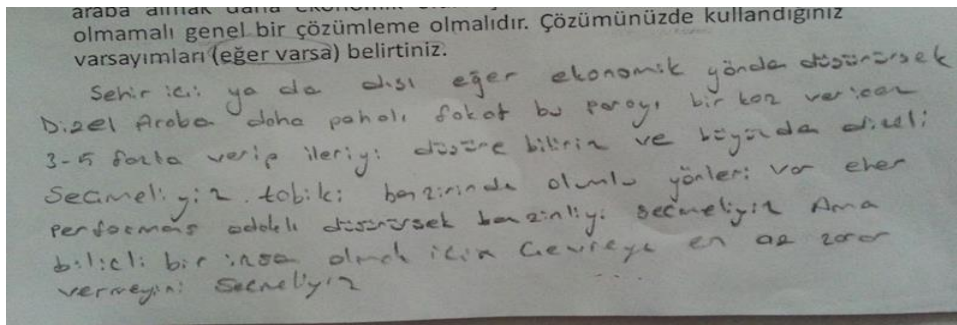 araba almak daha ekonomik
olmamalı genel bir çözümleme olmalıdır. Çözümünüzde kullandığınız
varsayımları (eğer varsa) belirtiniz.
Sehir ici ya da dışı eğer ekonomik yönden düşünürsek
Dizel Araba daha pahalı fakat bu parayı bir kez
3-5 fazla verip ileriyi düşüne biliriz ve dizeli
Seçmeliyiz. tabiki benzininde olumlu yönleri var eher
performans odaklı düşünürsek benzinliyi seçmeliyiz Ama
bilicli bir insa olmak icin Cevreye en az zarar
vermeyini Secmeliyiz